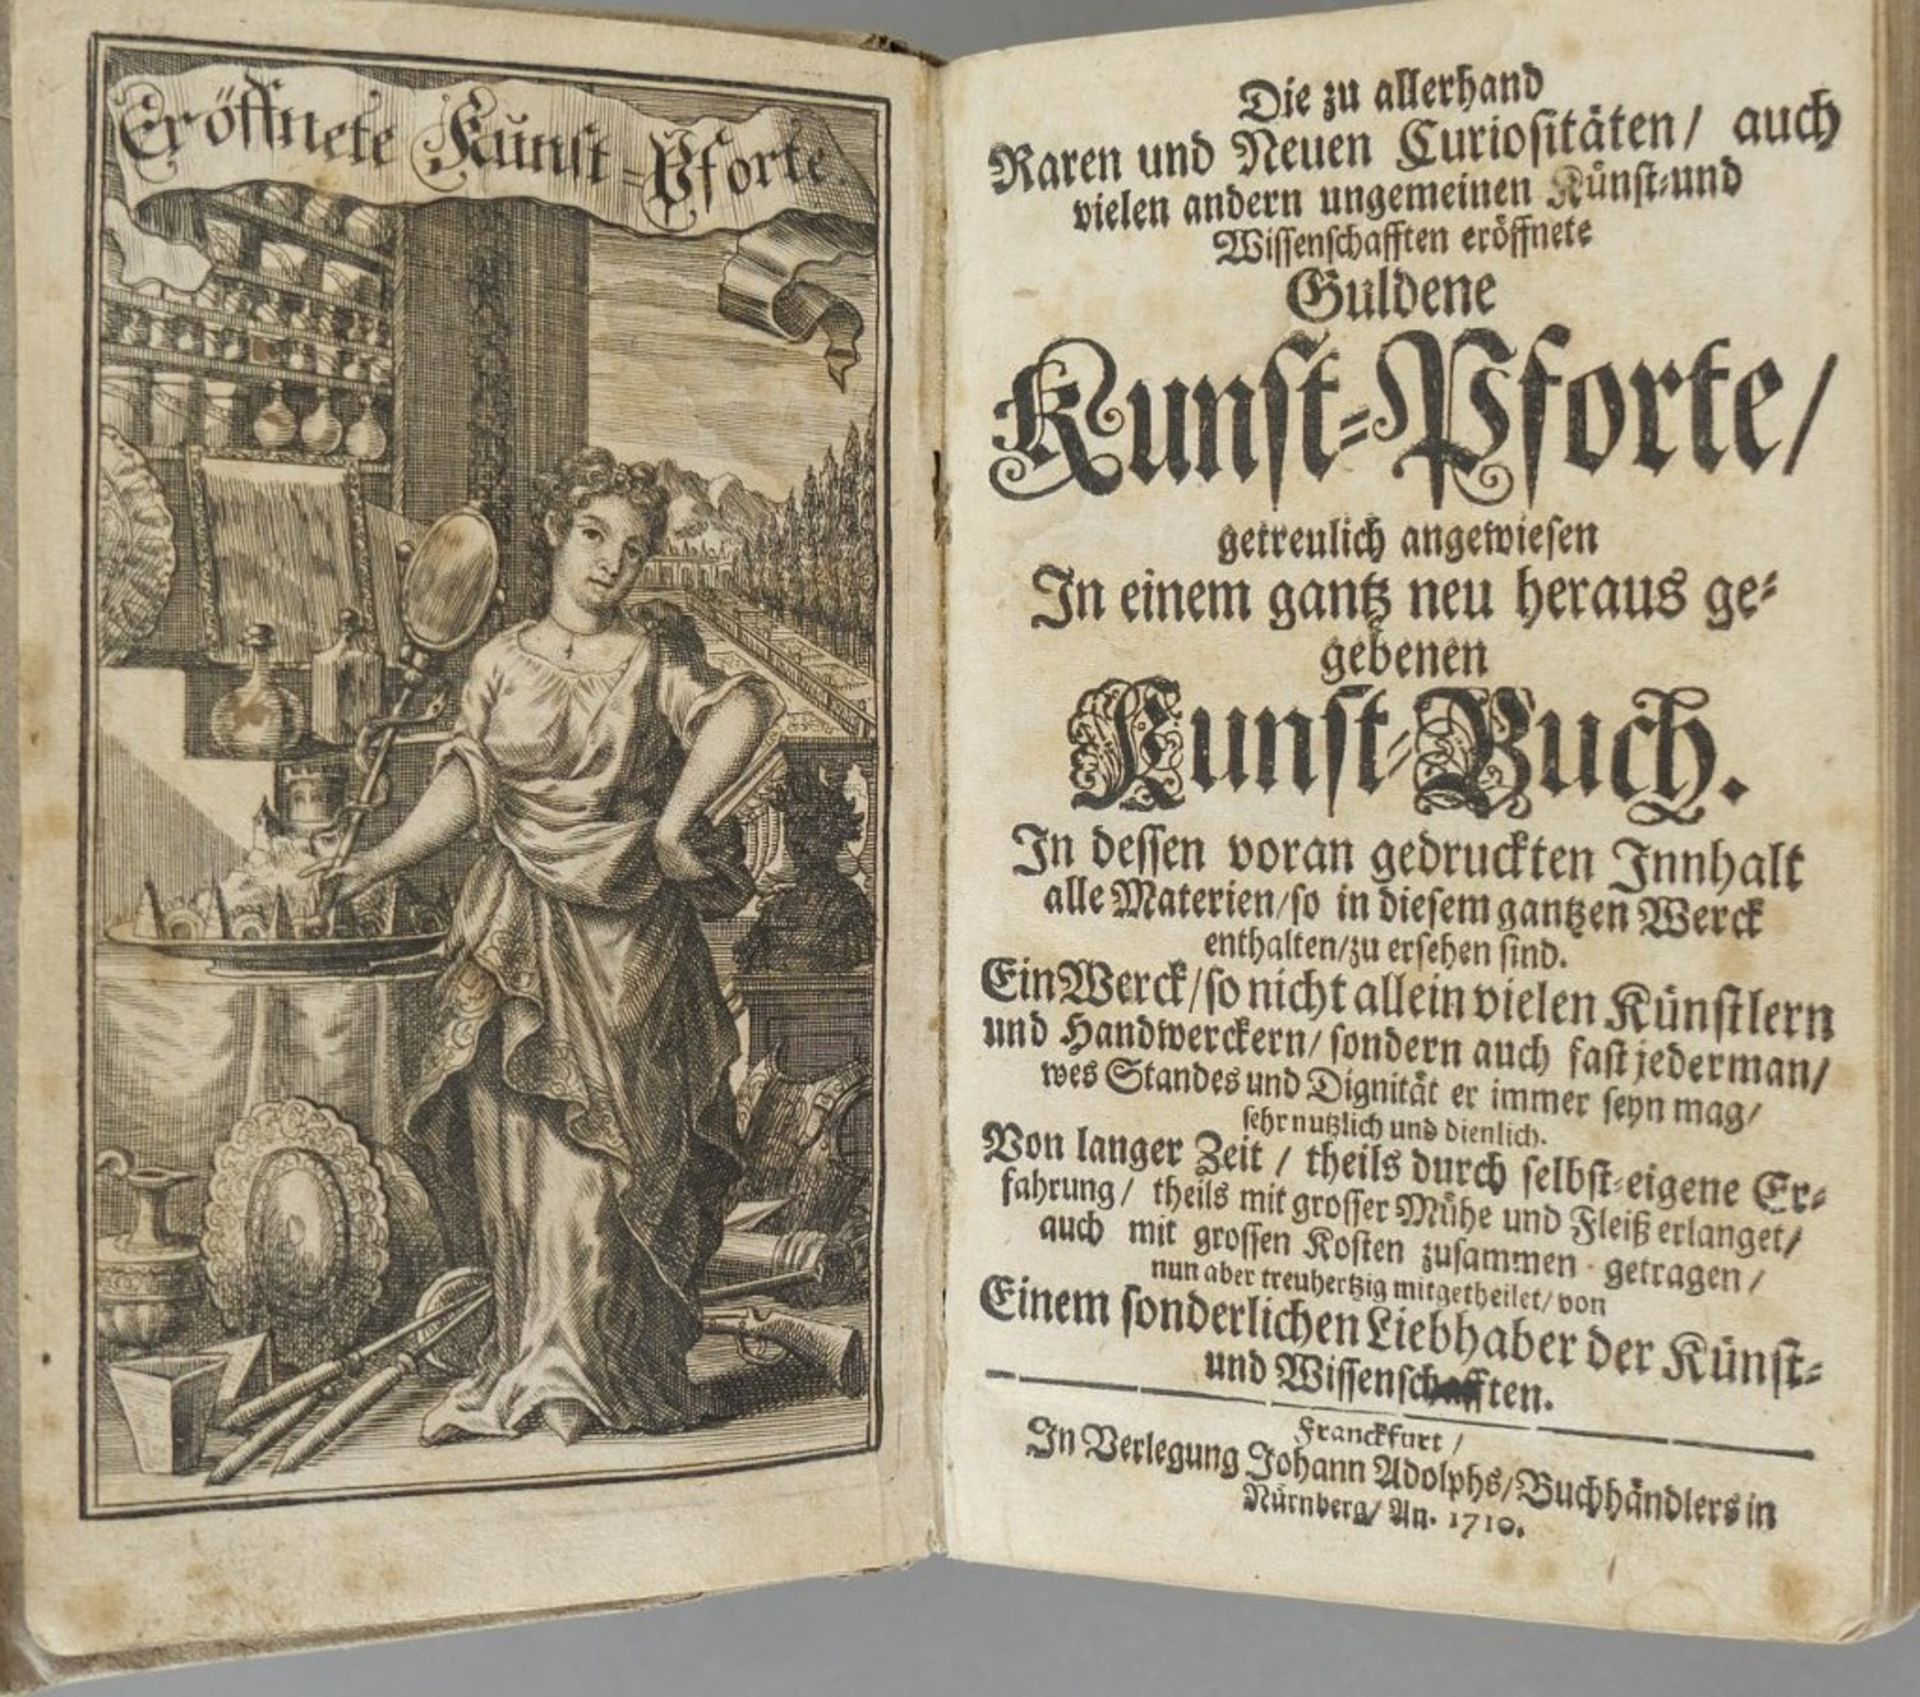 Eröffnete Kunst-Pforte.
Die zu allerhand
Raren und Neuen Curiositäten/ auch
vielen andern ungemeinen Künst-und
Wissenschafften eröffnete
Guldene
Kunst-Pforte/
getreulich angewiesen
In einem gantz neu heraus ge-
gebenen
Kunst-Buch.
In dessen voran gedruckten Innhalt
alle Materien/so in diesem gantzen Werck
enthalten/zu ersehen sind.
Ein Werck/so nicht allein vielen Künstlern
und Handwerckern/sondern auch fast jederman/
wes Standes und Dignität er immer seyn mag/
sehr nutzlich und dienlich.
Von langer Zeit / theils durch selbst-eigene Er-
fahrung/ theils mit grosser Mühe und Fleiß erlanget/
auch mit grossen Kosten zusammen getragen/
nun aber treuhertzig mitgetheilet/von
Einem sonderlichen Liebhaber der Künst-
und Wissenschafften.
Franckfurt/
In Verlegung Johann Adolphs/Buchhändlers in
Nürnberg/ An. 1710.